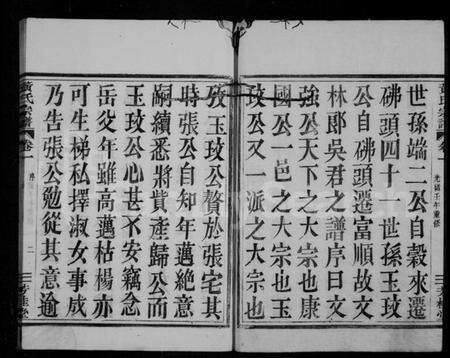 世孫端二公自榖來遷
佛頭四十一世孫玉玟
公自佛頭遷富順故文
林郎吳君之譜序曰文
強公天下之大宗也康
國公一邑之大宗也玉
玟公又一派之大宗也
攷玉玟公贅於張宅其
時張公自知年邁絶意
嗣續悉將貲產歸公而
玉玟公心甚不安竊念
岳父年雖高邁枯楊亦
可生梯私擇淑女事成
乃告張公勉從其意逾
黃氏宗譜
卷一
光緒壬午重修
黃氏宗譜
卷一
二